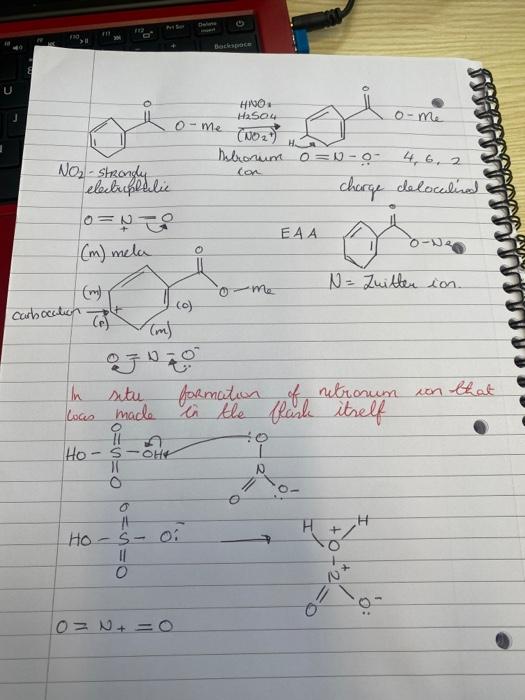 Prt Scr
Delete
Insert
f10
f11
f12
Backspace
U
J
O
HNO3
H2SO4
(NO2+)
O - Me
O
O - Me
H
Nitronium ion
O = N - O-
4, 6, 2
NO2 - strongly
electrophilic
charge delocalised
O = N - O
EAA
O
(m) meta
O
O - Me
N = Zuitter ion.
(m)
(o)
carbocation
+
(p)
(m)
O = N - O-
In situ formation of nitronum ion that
was made in the flask itself
O
HO - S - OH
O
:O
N
O
O-
O
HO - S - O:-
O
H + H
O
N+
O
O-
O = N + = O